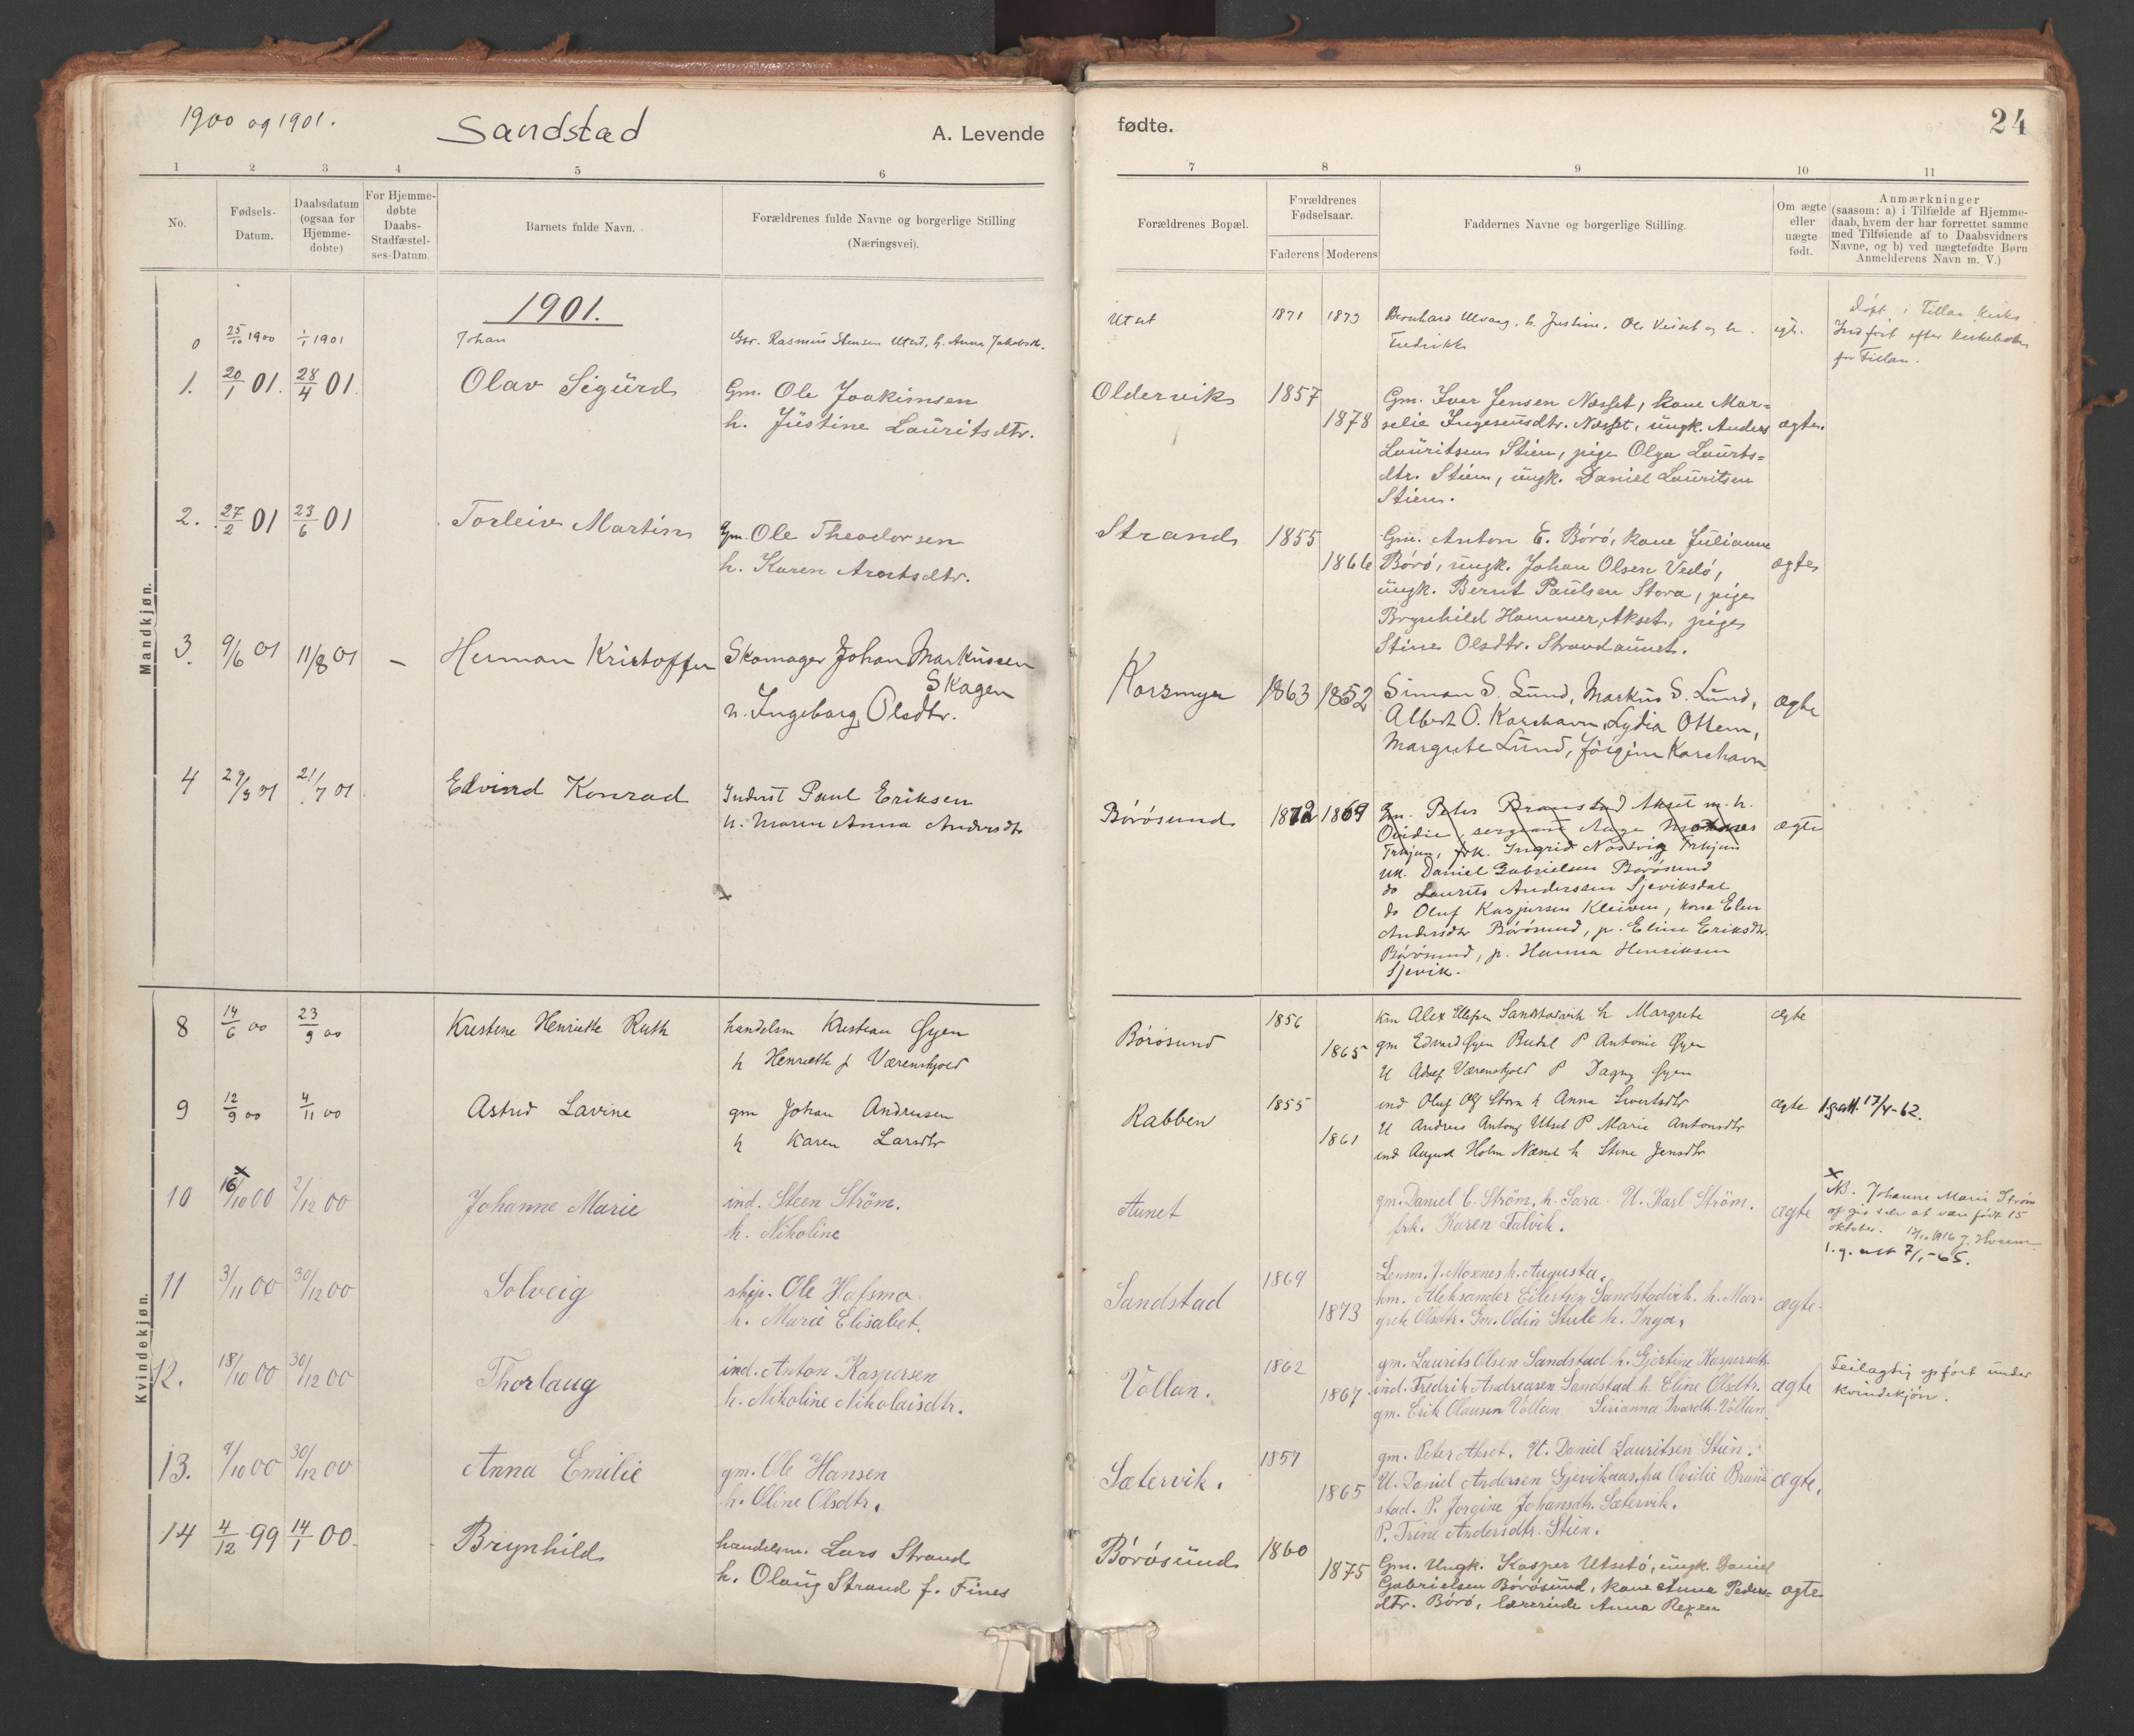 1900 og 1901.
Sandstad
A. Levende
fødte.
24
1 2 3 4 5 6 7 8 9 10 11
No.
Fødsels-Datum.
Daabsdatum (ogsaa for Hjemme-døbte)
For Hjemme-døbte Daabs-Stadfæstel-ses-Datum.
Barnets fulde Navn.
Forældrenes fulde Navne og borgerlige Stilling
(Næringsvei).
Forældrenes Bopæl.
Forældrenes Fødselsaar.
Faderens Moderens
Faddernes Navne og borgerlige Stilling.
Om ægte eller uægte født.
Anmærkninger
(saasom: a) i Tilfælde af Hjemme-
daab, hvem der har forrettet samme
med Tilføiende af to Daabsvidners
Navne, og b) ved uægtefødte Børn
Anmelderens Navn m. V.)
Mandkjøn.
1901.
0 25/10 1900 1/1 1901 Johan
Rasmus Stensen Utset, h. Anna
Utset 1871 1873
Bernhard Ulvang, h. Justine. Ole
Fredrikke
Døpt i Fillan kirke
Indført efter kirkebok
for Fillan.
1. 20/1 01. 28/4 01. Olav Sigurd
Gm. Ole Joakimsen
h. Justine Lauritsdtr.
Oldervik 1857 1878
Gm. Iver Jensen Næsset, kone Mar=
selie Næsset, ungk. Anders
Lauritsen Stien, pige Olga Laurts=
dtr. Stien, ungk. Daniel Lauritsen
Stien.
ægte.
2. 27/2 01 23/6 01 Torleiv Martin
Gm. Ole Theodorsen
h. Karen Arntsdtr.
Strand 1855 1866
Gm. Anton E. Börö, kone Julianne
Börö, ungk. Johan Olsen Vedö,
ungk. Bernt Paulsen Stora, pige
Brynhild Hammer, Akset, pige
Stine Olsdtr. Strandaunet.
ægte
3. 9/6 01 11/8 01 – Herman Kristoffer
Skomager Johan Markussen
Skagen
h. Ingeborg Olsdtr.
Korsmyr 1863 1852
Simon S. Lund, Markus S. Lund,
Albert O. Korshavn, Lydia Ottem,
Margrete Lund, Jörgine Korshavn
ægte
4 29/3 01 21/7 01 Edvind Konrad
Inderst Paul Eriksen
h. Maren Anna Andersdtr
Börösund 1872 1869
Gm. Peter Brunstad Akset m. h.
Ovidie, sergeant Aage
frk. Ingrid
uk. Daniel Gabrielsen Börösund
do Laurits Anderssen Gjeviksdal
do Oluf Kaspersen Kleiven, kone Elen
Andersdtr Börösund, p. Eline Eriksdtr.
Börösund, p. Hanna Henriksen
Gjevik.
ægte
Kvindekjøn.
8 14/6 00 23/9 00 Kristine Henriette Ruth
handelsm Kristian Øyen
h Henriette f Værenskjold
Börösund 1856 1865
km Alex Sandstadvik h Margrete
gm Edvard Øyen P Antonie Øyen
U Adolf Værenskjold P Dagny Øyen
ægte
9 12/9 00 4/11 00 Astrid Lavine
gm Johan Andreasen
h Karen Larsdtr
Rabben 1855 1861
ind Oluf Stora h Anna Sivertsdtr
U Andreas Utset P Marie Antonsdtr
ind August Holm h Stine Jensdtr
ægte 1.g.att. 17/4-62.
10 16/10 00 2/12 00 Johanne Marie
ind. Steen Ström.
h. Nikoline
Aunet
gm. Daniel C. Ström, h. Sara. U. Karl Ström.
frk. Karen Falvik.
ægte
x NB. Johanne Marie Ström
opgis selv at være født 15
oktober.
1.g. att 7/1-65.
11 3/11 00 30/12 00 Solveig
skip. Ole Hafsmo.
h. Marie Elisabet.
Sandstad 1869 1873
Lensm. J. Moxnes h. Augusta.
km. Aleksander Eilertsen Sandstadvik. h. Mar=
grete Olsdtr. Gm. Odin Stule h. Inga.
ægte.
12. 18/10 00 30/12 00 Thorlaug
ind. Anton Kaspersen
h. Nikoline Nikolaisdtr.
Vollan. 1862 1867
gm. Laurits Olsen Sandstad h. Gjertine Kaspersdtr.
ind. Fredrik Andreasen Sandstad h. Eline Olsdtr.
gm. Erik Olausen Vollan Sirianna Ivarsdtr. Vollan.
ægte
Feilagtig opført under
kvindekjøn.
13. 9/10 00 30/12 00 Anna Emilie
gm. Ole Hansen
h. Oline Olsdtr.
Sætervik. 1857 1865
gm. Peter Akset. U. Daniel Lauritsen Stien.
U. Daniel Andersen Gjevikaas, fru Ovidie Brun=
stad. P. Jorgine Johansdtr. Sætervik.
P. Trine Andersdtr. Stien.
ægte.
14 4/12 99 14/1 00. Brynhild
handelsm. Lars Strand
h. Olaug Strand f. Fines
Börösund 1860 1875
Gm. Ungk. Kasper Utsetö, ungk. Daniel
Gabrielsen Börösund, kone Anna Peders=
dtr. Börö, lærerinde Anna Rexen
ægte